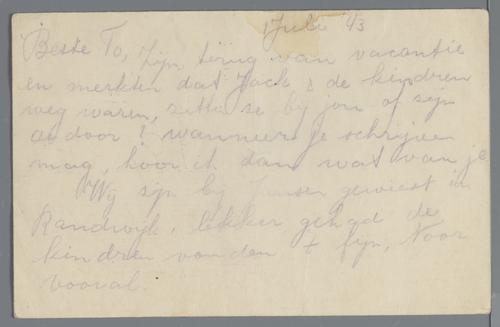 Juli '43
Beste To, Zijn terug van vacantie
en merkten dat Jack & de kindren
weg waren, zitten se bij jou of zijn
ze door? wanneer je schrijven
mag, hoor ik dan wat van je
Wij zijn bij Jansen geweest in
Randwijk, lekker gehad de
kindren vonden 't fijn, Noor
vooral.